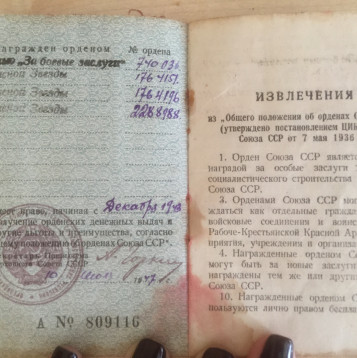 награжден орденом № ордена
„За боевые заслуги“ 740036
Звезды 1764151
Звезды 1764196
Звезды 2288988
право, начиная с Декабря 194
получение орденских денежных выдач и
другие льготы и преимущества, согласно
положению об орденах Союза ССР".
Президиума
Совета Союза ССР
А. Горкин
10 194
А № 809116
ИЗВЛЕЧЕНИЯ
из „Общего положения об орденах С
(утверждено постановлением ЦИК
Союза ССР от 7 мая 1936
1. Орден Союза ССР является
наградой за особые заслуги
социалистического строительства
Союза ССР.
3. Орденами Союза ССР мог
ждаться как отдельные граждан
войсковые соединения и
Рабоче-Крестьянской Красной Арм
приятия, учреждения и организа
4. Награжденные орденом С
могут быть за новые заслуги
награждены тем же или друг
Союза ССР.
10. Награжденные орденом С
пользуются лично правом беспла